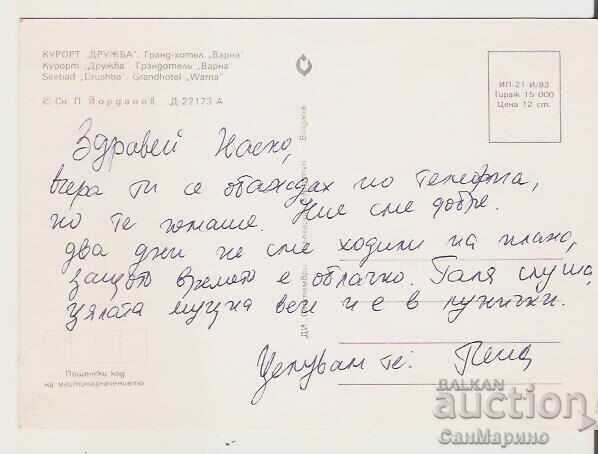 КУРОРТ „ДРУЖБА". Гранд-хотел „Варна"
Курорт „Дружба". Грандотель „Варна"
Seebad „Drushba". Grandhotel „Warna"
© Сн. П. Йорданов. Д-22173-А
ИП-21-И/83
Тираж 15 000
Цена 12 ст.
Здравей Наско,
вчера ти се обаждах по телефона,
но те нямаше. Ние сме добре.
два дни не сме ходили на плажа,
защото времето е облачно. Галя слуша
цялата муцуна вече и е в лунички.
Целувам те:
Пощенски код
на местоназначението
BALKAN
auction
СанМарино